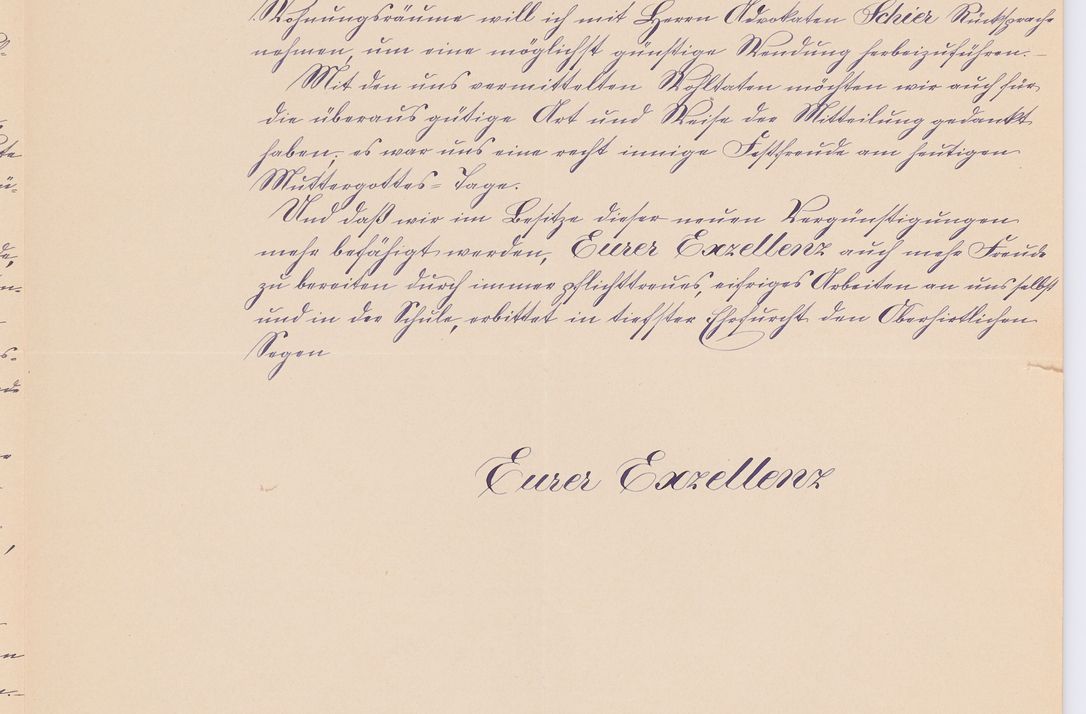 Wohnungsräume will ich mit Herrn Advokaten Schier Rücksprache
nehmen, um eine möglichst günstige Wendung herbeizuführen. –
Mit den uns vermittelten Wohltaten möchten wir auch für
die überaus gütige Art und Weise der Mitteilung gedankt
haben; es war uns eine recht innige Festfreude am heutigen
Muttergottes-Tage.
Und daß wir im Besitze dieser neuen Vergünstigungen
mehr befähigt werden, Eurer Exzellenz auch mehr Freude
zu bereiten durch immer pflichttreues, eifriges Arbeiten an uns selbst
und in der Schule, erbittet in tiefster Ehrfurcht den Oberhirtlichen
Segen
Eurer Exzellenz